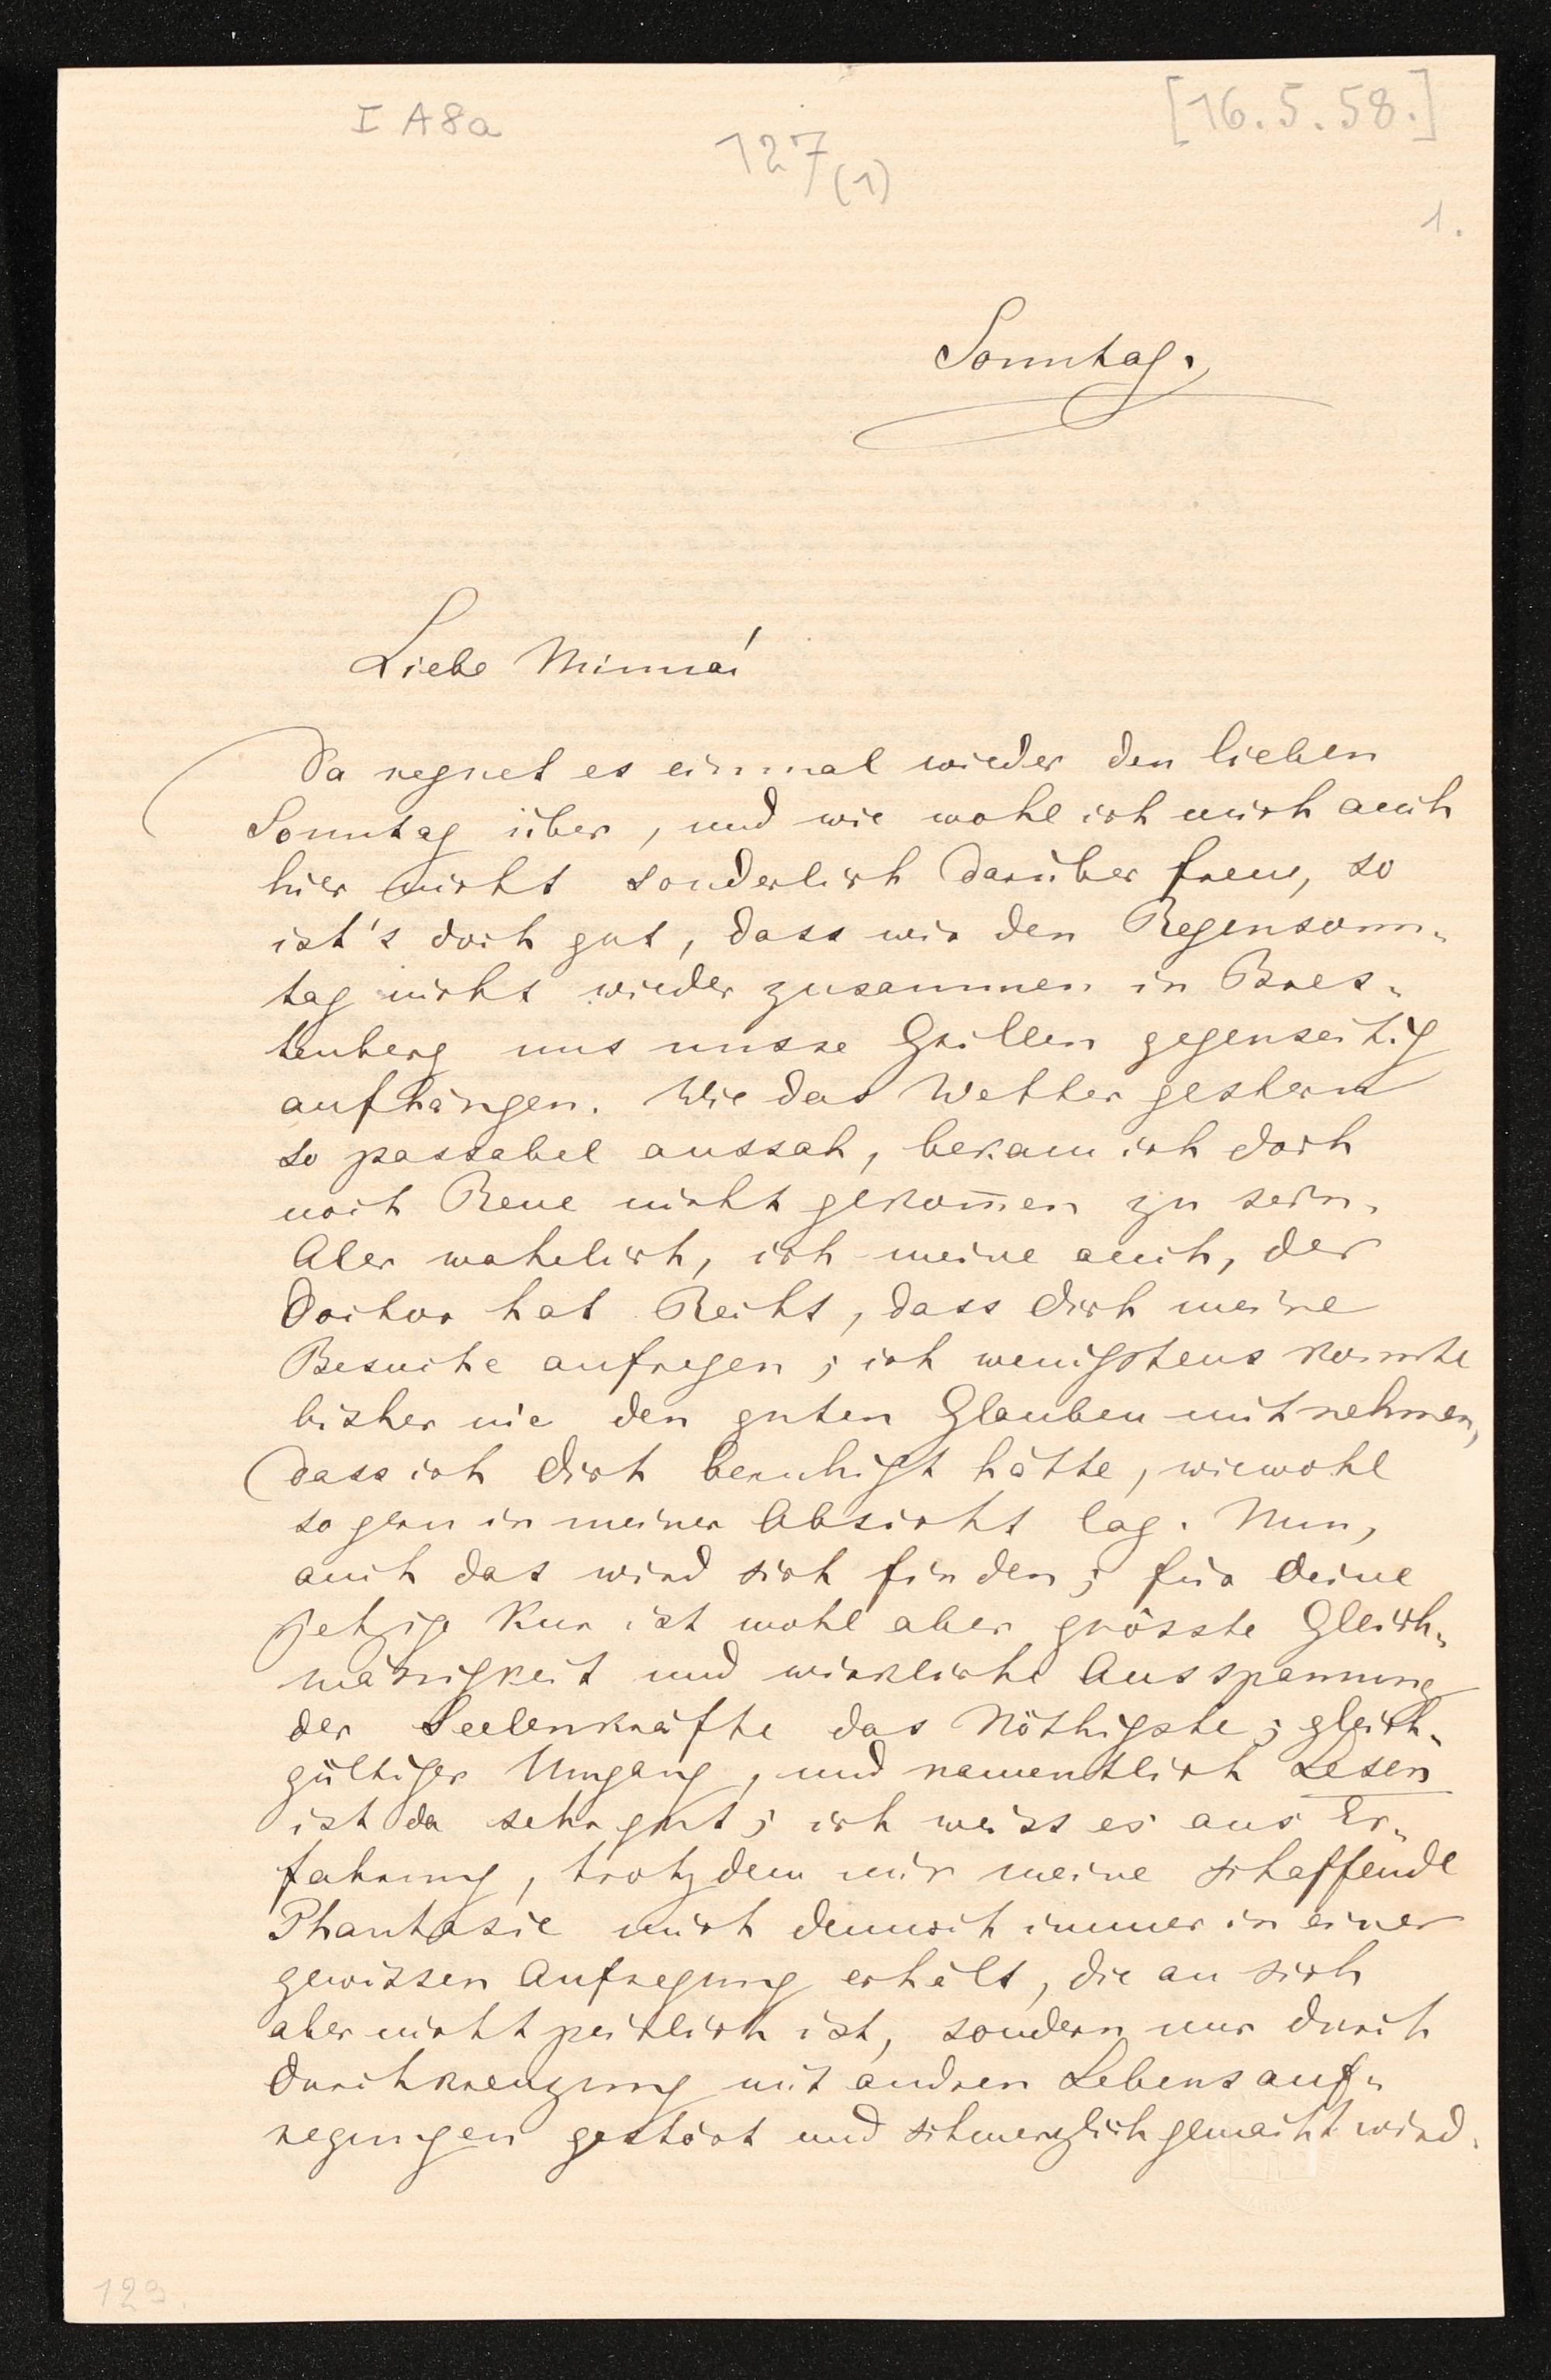 I A8a
[16.5.58.]
127(1)
1.
Sonntag.
Liebe Minna!
Da regnet es einmal wieder den lieben
Sonntag über, und wie wohl ich mich auch
hier nicht sonderlich darüber freue, so
ist's doch gut, dass wir den Regensonn-
tag nicht wieder zusammen in Bres-
tenberg uns unsre Grillen gegenseitig
aufhängen. Wie das Wetter gestern
so passabel aussah, bekam ich doch
noch Reue nicht gekom̄en zu sein.
Aber wahrlich, ich meine auch, der
Doctor hat Recht, dass Dich meine
Besuche aufregen; ich wenigstens konnte
bisher nie den guten Glauben mit nehmen,
dass ich Dich beruhigt hätte, wiewohl
so gern in meiner Absicht lag. Nun,
auch das wird sich finden; für Deine
jetzige Kur ist wohl aber grösste Gleich-
mässigkeit und wirkliche Ausspannung
der Seelenkräfte das Nöthigste; gleich-
gültiger Umgang, und namentlich Lesen
ist da sehr gut; ich weiss es aus Er-
fahrung, trotzdem mir meine schaffende
Phantasie mich dennoch immer in einer
gewissen Aufregung erhält, die an sich
aber nicht peinlich ist, sondern nur durch
Durchkreuzung mit andren Lebensauf-
regungen gestört und schmerzlich gemacht wird.
123.